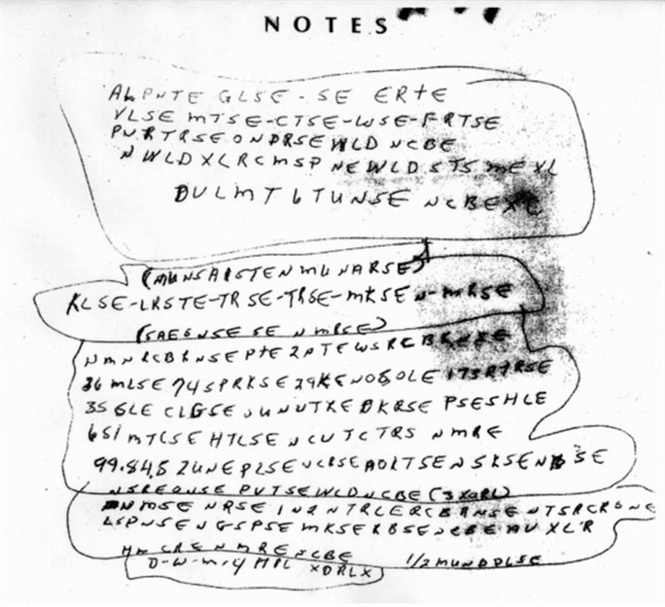 NOTES
ALPNTE GLSE - SE ERTE
VLSE MTSE-CTSE-WSE-FRTSE
PNRTRSE ONDRSE WLD NCBE
NWLDXLRCMSP NEWLD STS MEXL
DULMT 6 TUNSE NCBEXC
(MUNSAISTENMUNARSE)
KLSE-LRSTE-TRSE-TRSE-MKSEN-MRSE
(SAEGNSE SE NMRSE)
NMNRCBRNSE PTE 2PTEWSRCBRNSE
36 MLSE 74SPRKSE 29KENOSOLE 173RTRSE
35 GLE CLGSE UNUTXE DKRSE PSESHLE
651 MTLSE HTLSE NCUTCTRS NMRE
99.84.5 2UNEPLSE NCRSE AOLTSE NSKSENBSE
NSREONSE PUTSEWLD NCBE (3XORL)
NMSE NRSE IN2NTRLERCBRNSE NTSRCRONE
LSPNSE NGSPSE MKSERBSE NCBE AUXLR
HMCRE NMRE NCBE 1/2 MUNDDLSE
D-W-M-4 HPL XDRLX